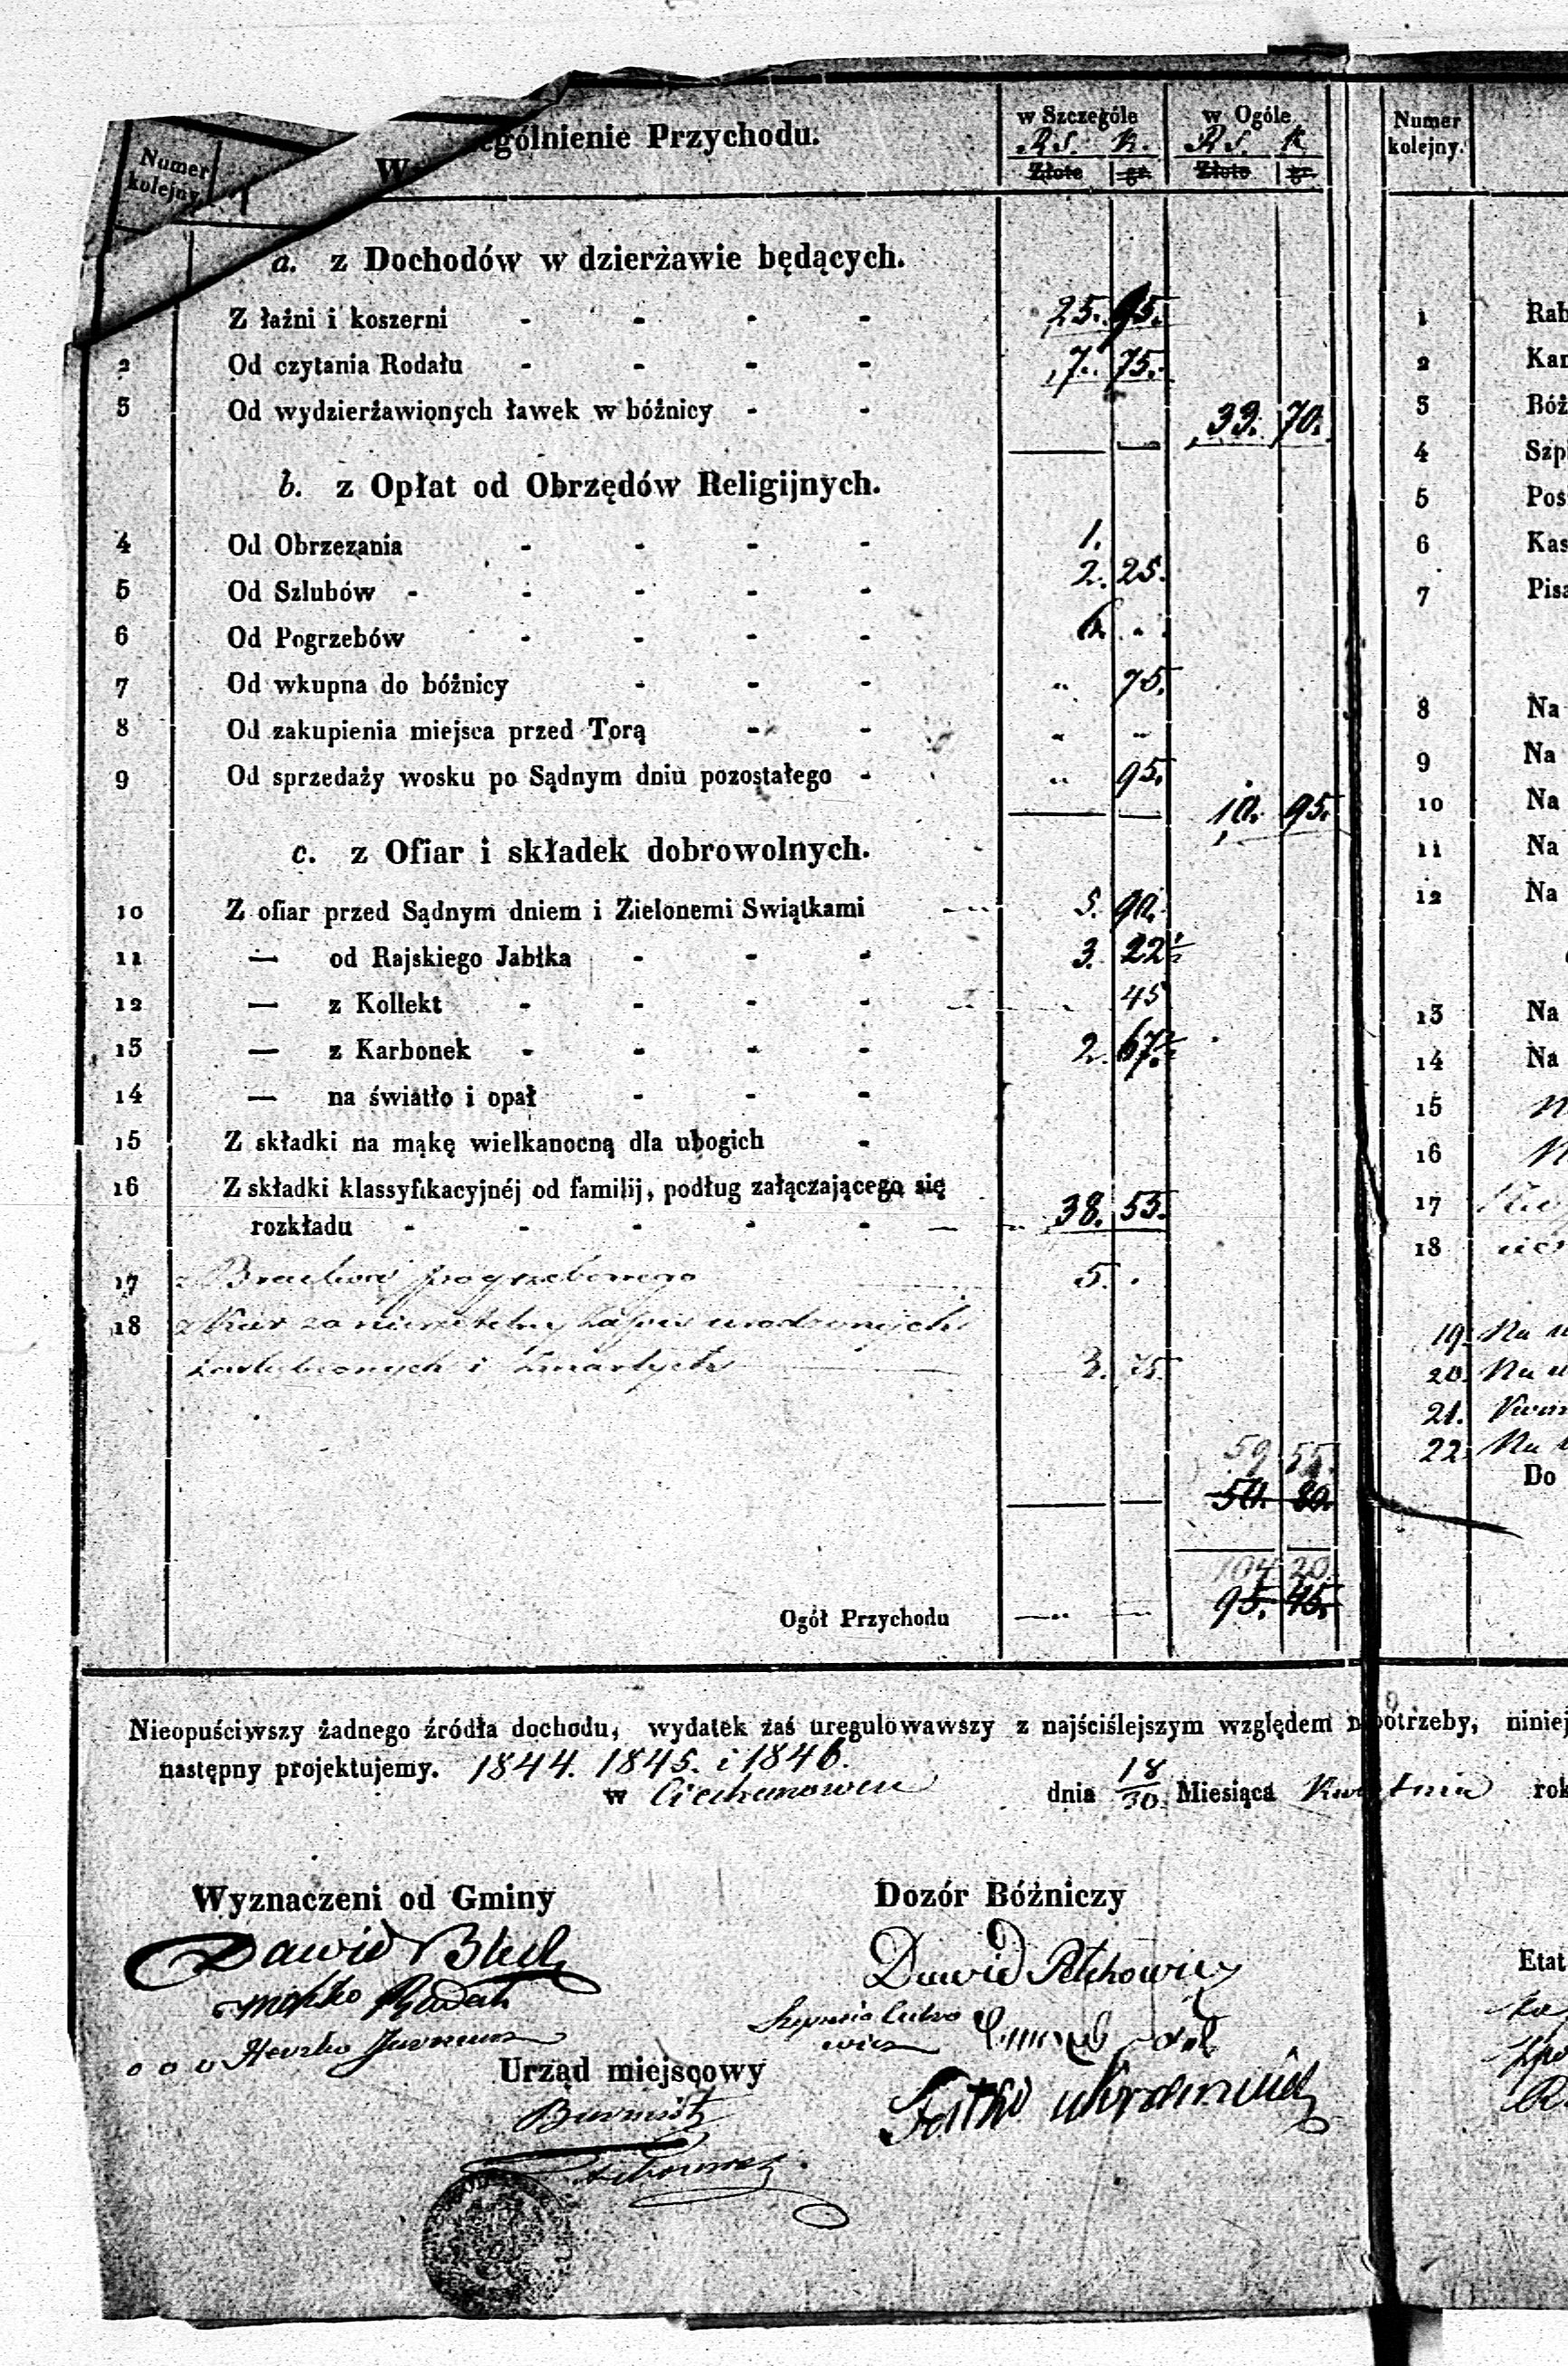 Numer kolejny.
gólnienie Przychodu.
w Szczególe
w Ogóle
R S. K. R S. K
Złote gr. Złote gr.
a. z Dochodów w dzierżawie będących.
Z łaźni i koszerni - - - - 25. 95.
2 Od czytania Rodału - - - - 7. 75.
3 Od wydzierżawionych ławek w bóźnicy - - 33. 70.
b. z Opłat od Obrzędów Religijnych.
4 Od Obrzezania - - - - 1.
5 Od Szlubów - - - - - 2. 25.
6 Od Pogrzebów - - - - 6. "
7 Od wkupna do bóźnicy - - - " 75.
8 Od zakupienia miejsca przed Torą - - " "
9 Od sprzedaży wosku po Sądnym dniu pozostałego - " 95.
10. 95.
c. z Ofiar i składek dobrowolnych.
10 Z ofiar przed Sądnym dniem i Zielonemi Swiątkami 5. 90.
11 — od Rajskiego Jabłka - - - 3. 22½
12 — z Kollekt - - - - 45
13 — z Karbonek - - - - 2. 67½
14 — na światło i opał - - -
15 Z składki na mąkę wielkanocną dla ubogich -
16 Z składki klassyfikacyjnéj od familij, podług załączającego się
rozkładu - - - - - 38. 53.
17 z Bractwa pogrzebowego 5. .
18 z Kar za nierzetelny zapis urodzonych
zaślubionych i zmarłych 3. 75.
59. 55.
50. 80.
104 20.
Ogół Przychodu 95. 45.
Nieopuściwszy żadnego źródła dochodu, wydatek zaś uregulowawszy z najściślejszym względem potrzeby, niniej
następny projektujemy. 1844. 1845. i 1846.
w Ciechanowcu dnia 18/30. Miesiąca Kwietnia rok
Wyznaczeni od Gminy
Dawid
Herszko
Dozór Bóźniczy
Dawid
Urząd miejscowy
Burmistrz
Numer kolejny.
1 Rab
2 Kan
3 Bóź
4 Szp
5 Pos
6 Kas
7 Pisa
8 Na
9 Na
10 Na
11 Na
12 Na
13 Na
14 Na
15
16
17
18
19. Na
20. Na
21.
22. Na
Do
Etat